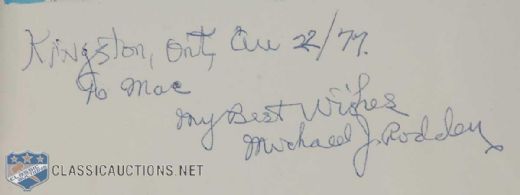 Kingston, Ont, 22/77.
To Mac
My Best Wishes
Michael J. Rodden
CLASSICAUCTIONS.NET